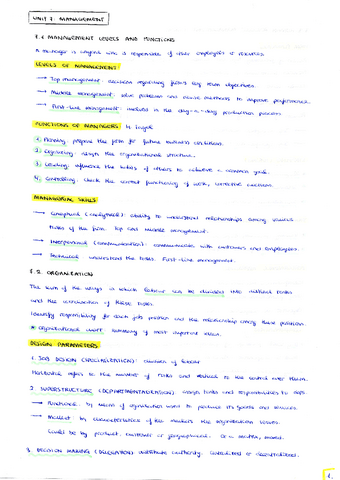 UNIT 7. MANAGEMENT
7.1 MANAGEMENT LEVELS AND FUNCTIONS
A manager is anyone who is responsible of other employees or resources
LEVELS OF MANAGEMENT:
→ Top management: decisions regarding firm's long term objectives.
→ Middle management: solve problems and to improve performance.
→ First-line management: involved in the day-to-day production process
FUNCTIONS OF MANAGERS
1. Planning: prepare the firm for future business
2. Organizing: design the organizational structure.
3. Leading: influence the of others to achieve a common goal.
4. Controlling: check the correct functioning of work, corrective
MANAGERIAL SKILLS
→ Conceptual (analytical): ability to understand relationships among various
of the firm. Top and middle management.
→ Interpersonal (communication): communicate with customers and employees.
→ Technical: understand the tasks. First-line management.
7.2 ORGANIZATION
The sum of the ways in which labour can be divided into different tasks
and the coordination of these tasks.
Identify responsibility for each job position and the relationship among these positions
Organizational chart: of most important
DESIGN PARAMETERS
1. JOB DESIGN (SPECIALIZATION): division of labour
Horizontal refers to the number of tasks and vertical to the control over them.
2. SUPERSTRUCTURE (DEPARTMENTALIZATION): assign tasks and responsibilities to
→ Functional: by of organization used to produce its goods and services.
→ Market: by characteristics of the markets the organization serves.
Could be by product, customer or geographical.
3. DECISION MAKING (DELEGATION): authority. Centralized or decentralized.
1.